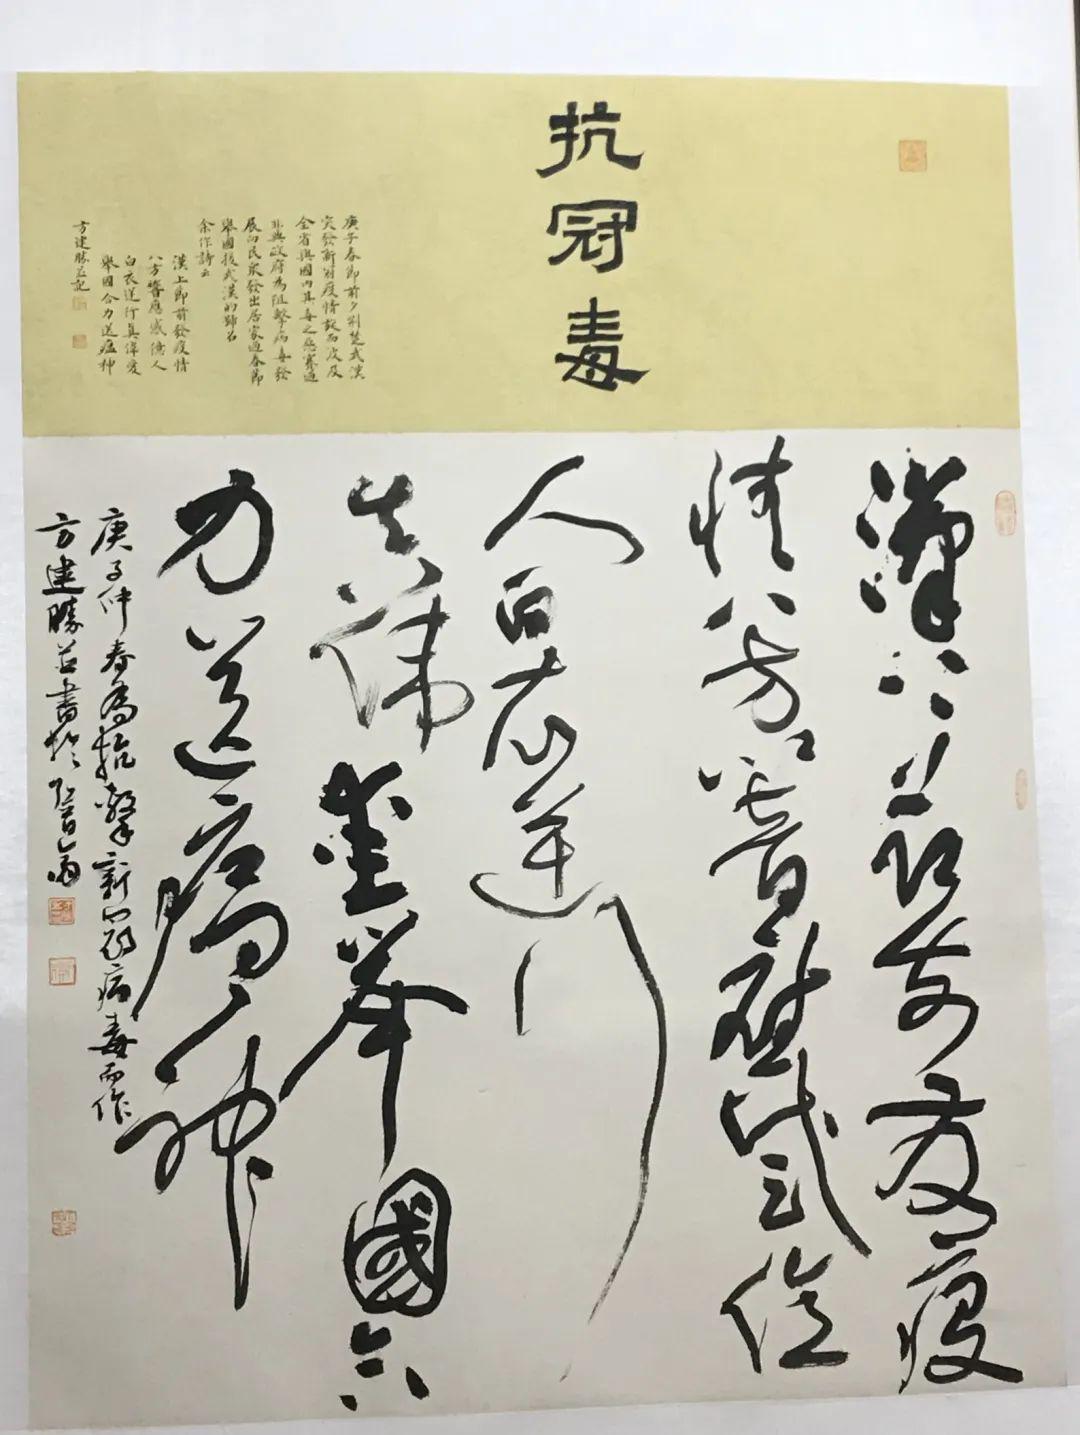 抗冠毒
庚子春節前夕荊楚武漢
突發新冠疫情故而波及
全省與國內其毒之惡賽過
非典政府為阻擊病毒發
展向民衆發出居家過春節
舉國援武漢的號召
余作詩云
漢上節前發疫情
八方響應感億人
白衣逆行真偉愛
舉國合力送瘟神
方建勝並記
漢上節前發疫
情八方響應感億
人白衣逆行
真偉愛舉國合
力送瘟神
庚子仲春為抗擊新冠病毒而作
方建勝并書於